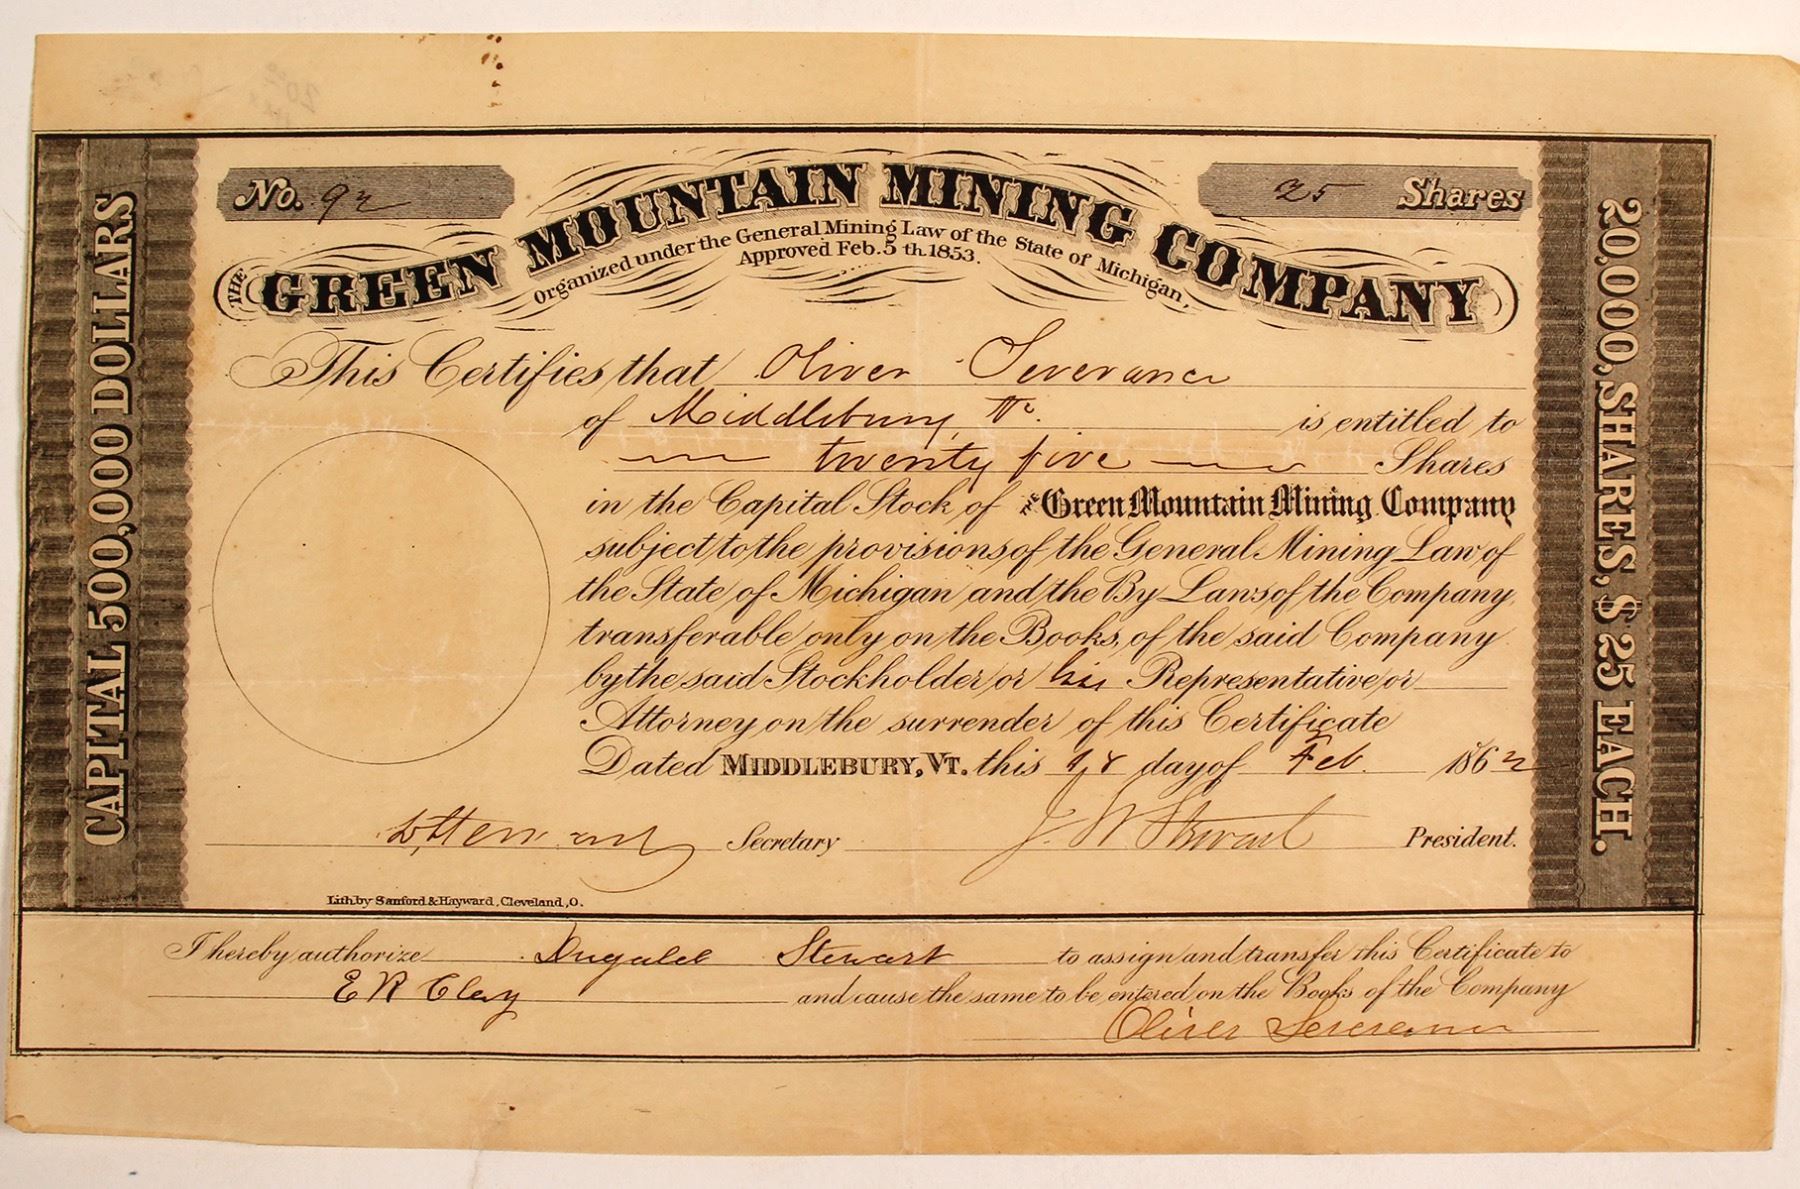 No. 92
25 Shares
THE GREEN MOUNTAIN MINING COMPANY
Organized under the General Mining Law of the State of Michigan,
Approved Feb. 5th. 1853.
CAPITAL 500,000 DOLLARS
20,000, SHARES, $25 EACH.
This Certifies that Oliver Severance
of Middlebury, Vt. is entitled to
twenty five Shares
in the Capital Stock of THE Green Mountain Mining Company
subject to the provisions of the General Mining Law of
the State of Michigan and the By Laws of the Company,
transferable only on the Books, of the said Company
by the said Stockholder or his Representative or
Attorney on the surrender of this Certificate
Dated MIDDLEBURY, VT. this 18 day of Feb. 1862
Secretary J. W. Stewart President.
Lith by Sanford & Hayward, Cleveland, O.
I hereby authorize Dugald Stewart to assign and transfer this Certificate to
E R Clay and cause the same to be entered on the Books of the Company
Oliver Severance